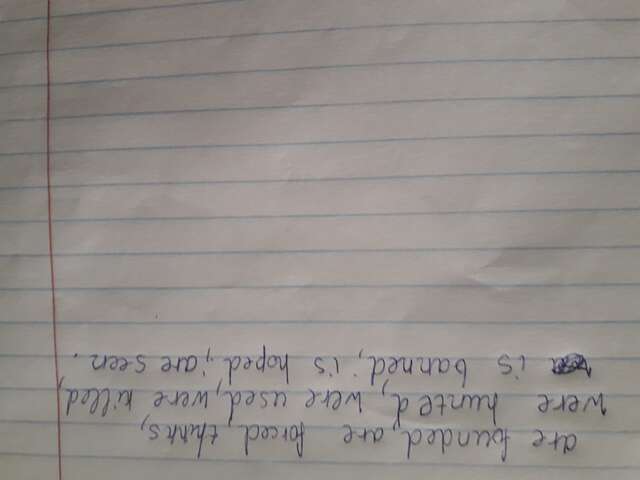 are founded, are forced, thinks,
were hunted, were used, were killed,
is banned, is hoped, are seen.